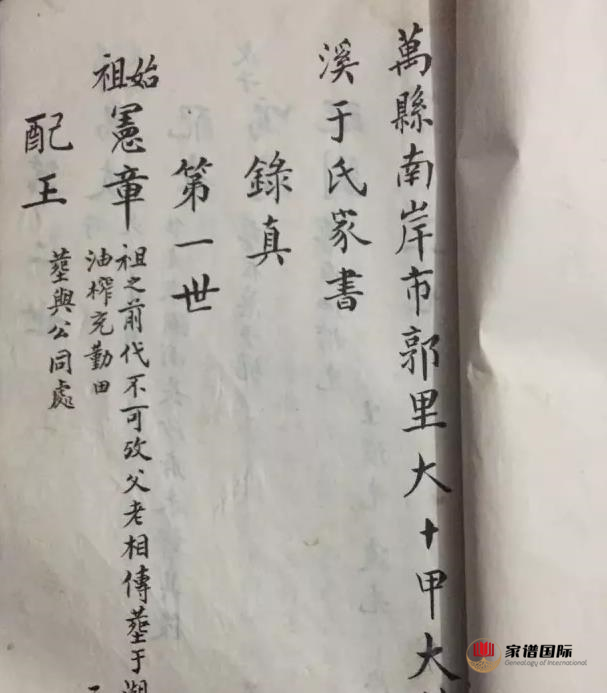 萬縣南岸市郭里大十甲大
溪于氏家書
錄真
第一世
始祖
憲章
祖之前代不可攷父老相傳塟于湖
油榨充勤田
配王
塟與公同處
家谱国际
Genealogy of International